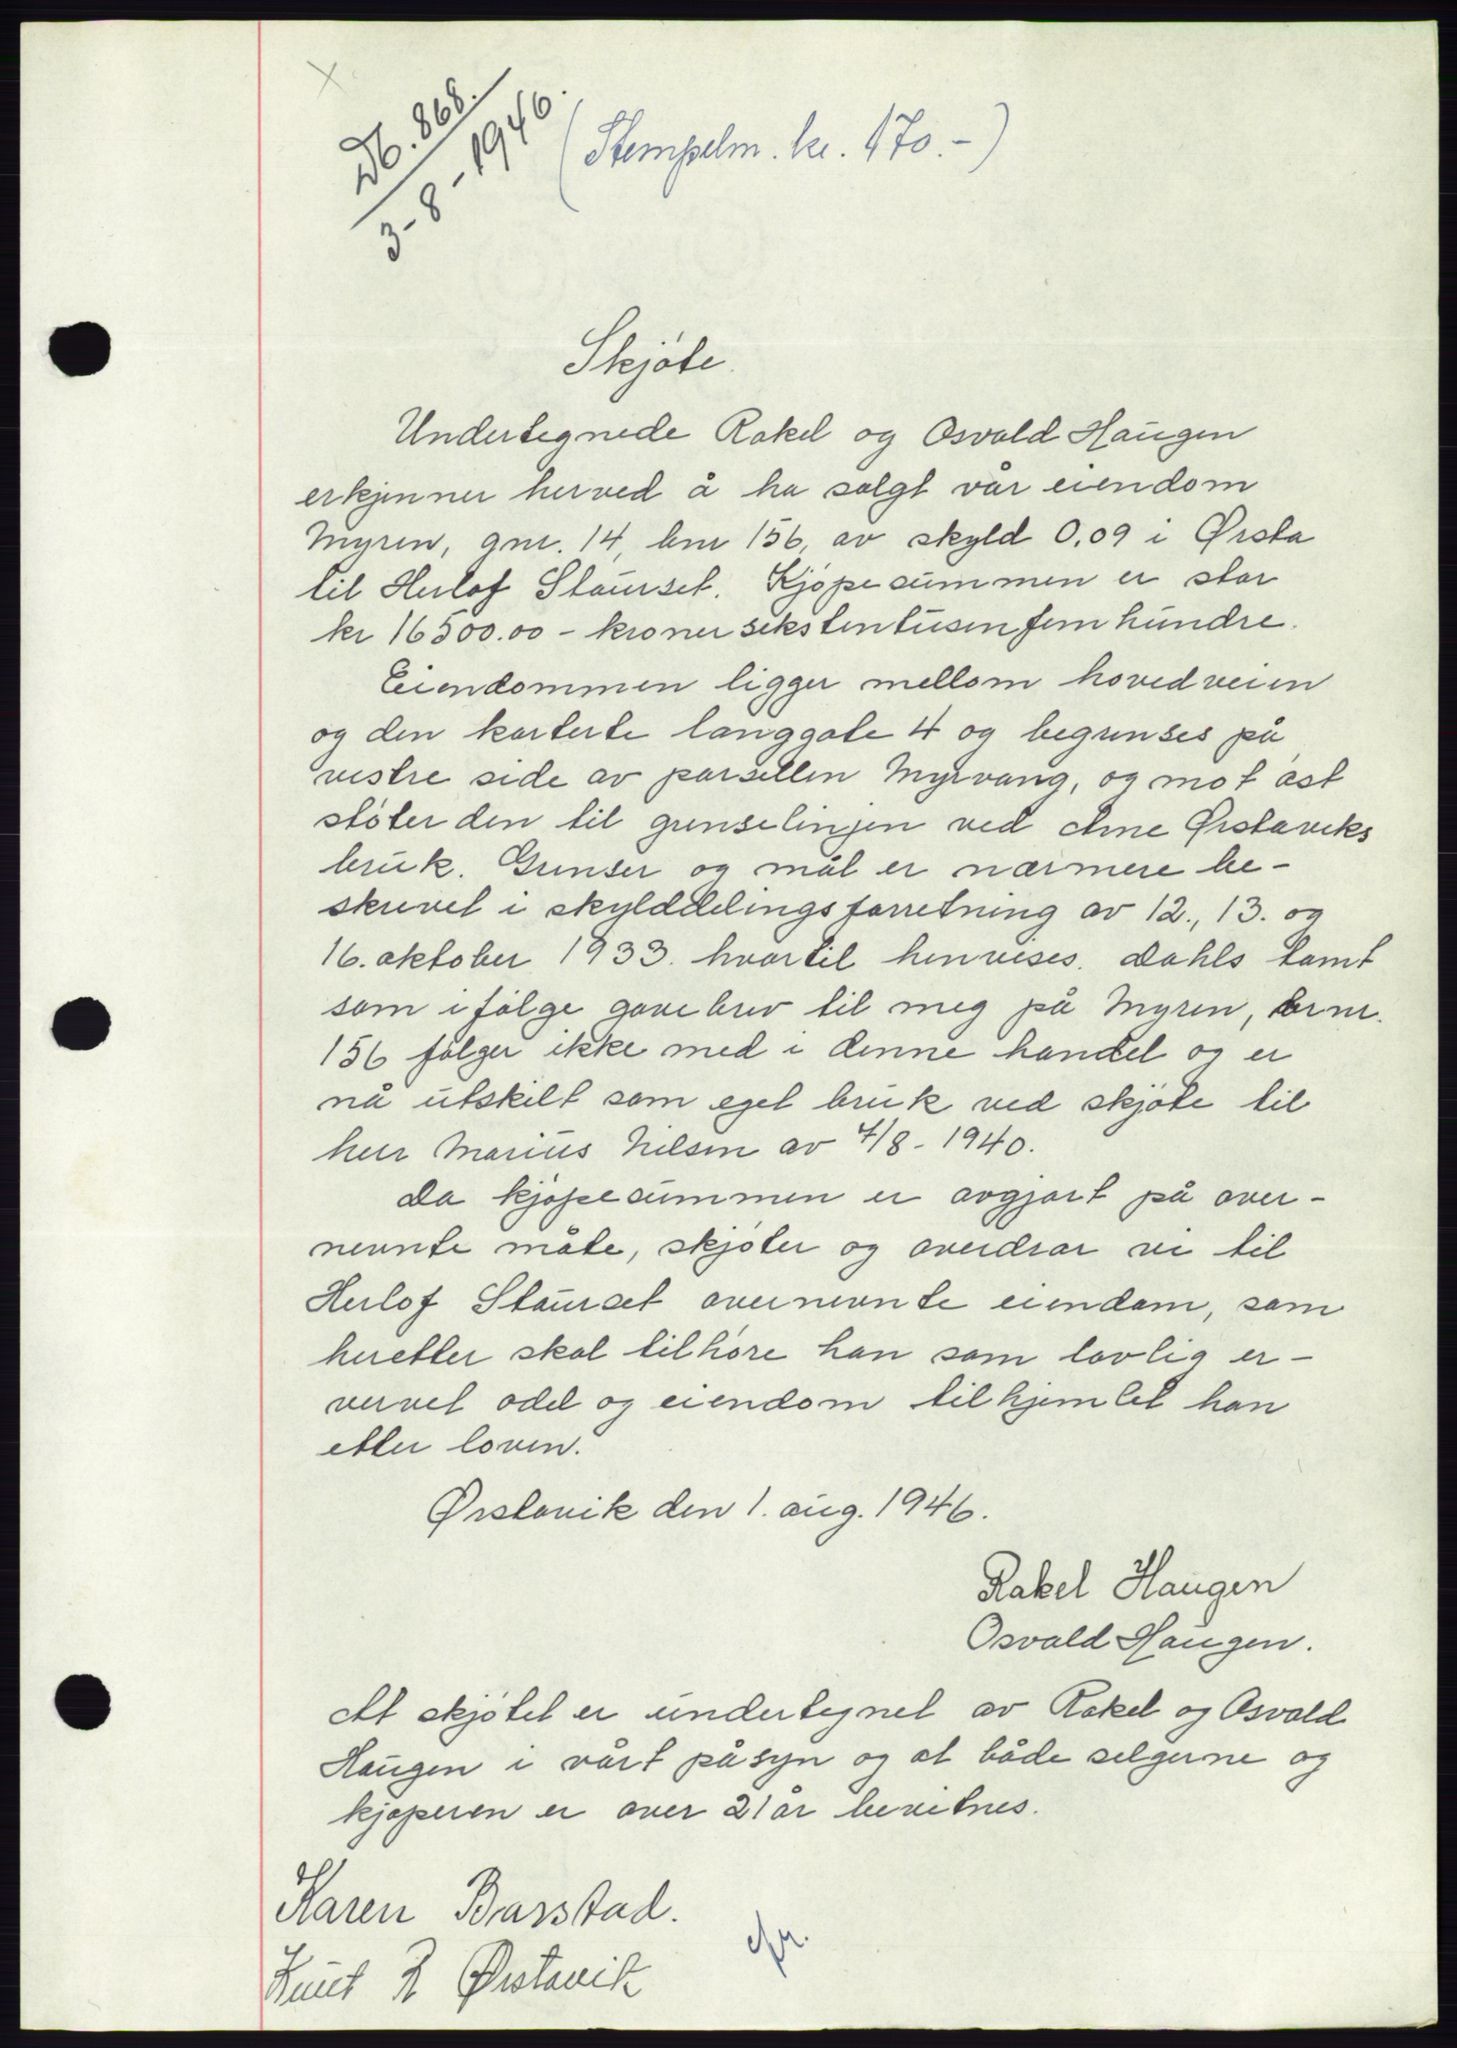 Db. 868.
3-8-1946.
(Stempelm. kr. 170.-)
Skjøte.
Undertegnede Rakel og Osvald Haugen
erkjenner herved å ha solgt vår eiendom
Myren, gnr. 14, bnr 156, av skyld 0,09 i Ørsta
til Herlof Staurset. Kjøpesummen er stor
kr 16500.00 - kroner sekstentusenfemhundre.
Eiendommen ligger mellom hovedveien
og den karterte langgate 4 og begrenses på
vestre side av parsellen Myrvang, og mot øst
støter den til grenselinjen ved Arne Ørstaviks
bruk. Grenser og mål er nærmere be-
skrevet i skylddelingsforretning av 12., 13. og
16. oktober 1933. hvortil henvises. Dahls tomt
som ifølge gavebrev til meg på Myren, brnr.
156 følger ikke med i denne handel og er
nå utskilt som eget bruk ved skjøte til
herr Marius Nilsen av 4/8-1940.
Da kjøpesummen er avgjort på over-
nevnte måte, skjøter og overdrar vi til
Herlof Staurset overnevnte eiendom, som
heretter skal tilhøre han som lovlig er-
vervet odel og eiendom tilhjemlet han
etter loven.
Ørstavik den 1. aug. 1946.
Rakel Haugen
Osvald Haugen.
At skjøtet er undertegnet av Rakel og Osvald
Haugen i vårt påsyn og at både selgerne og
kjøperen er over 21 år bevitnes.
Karen Barstad.
Knut R Ørstavik